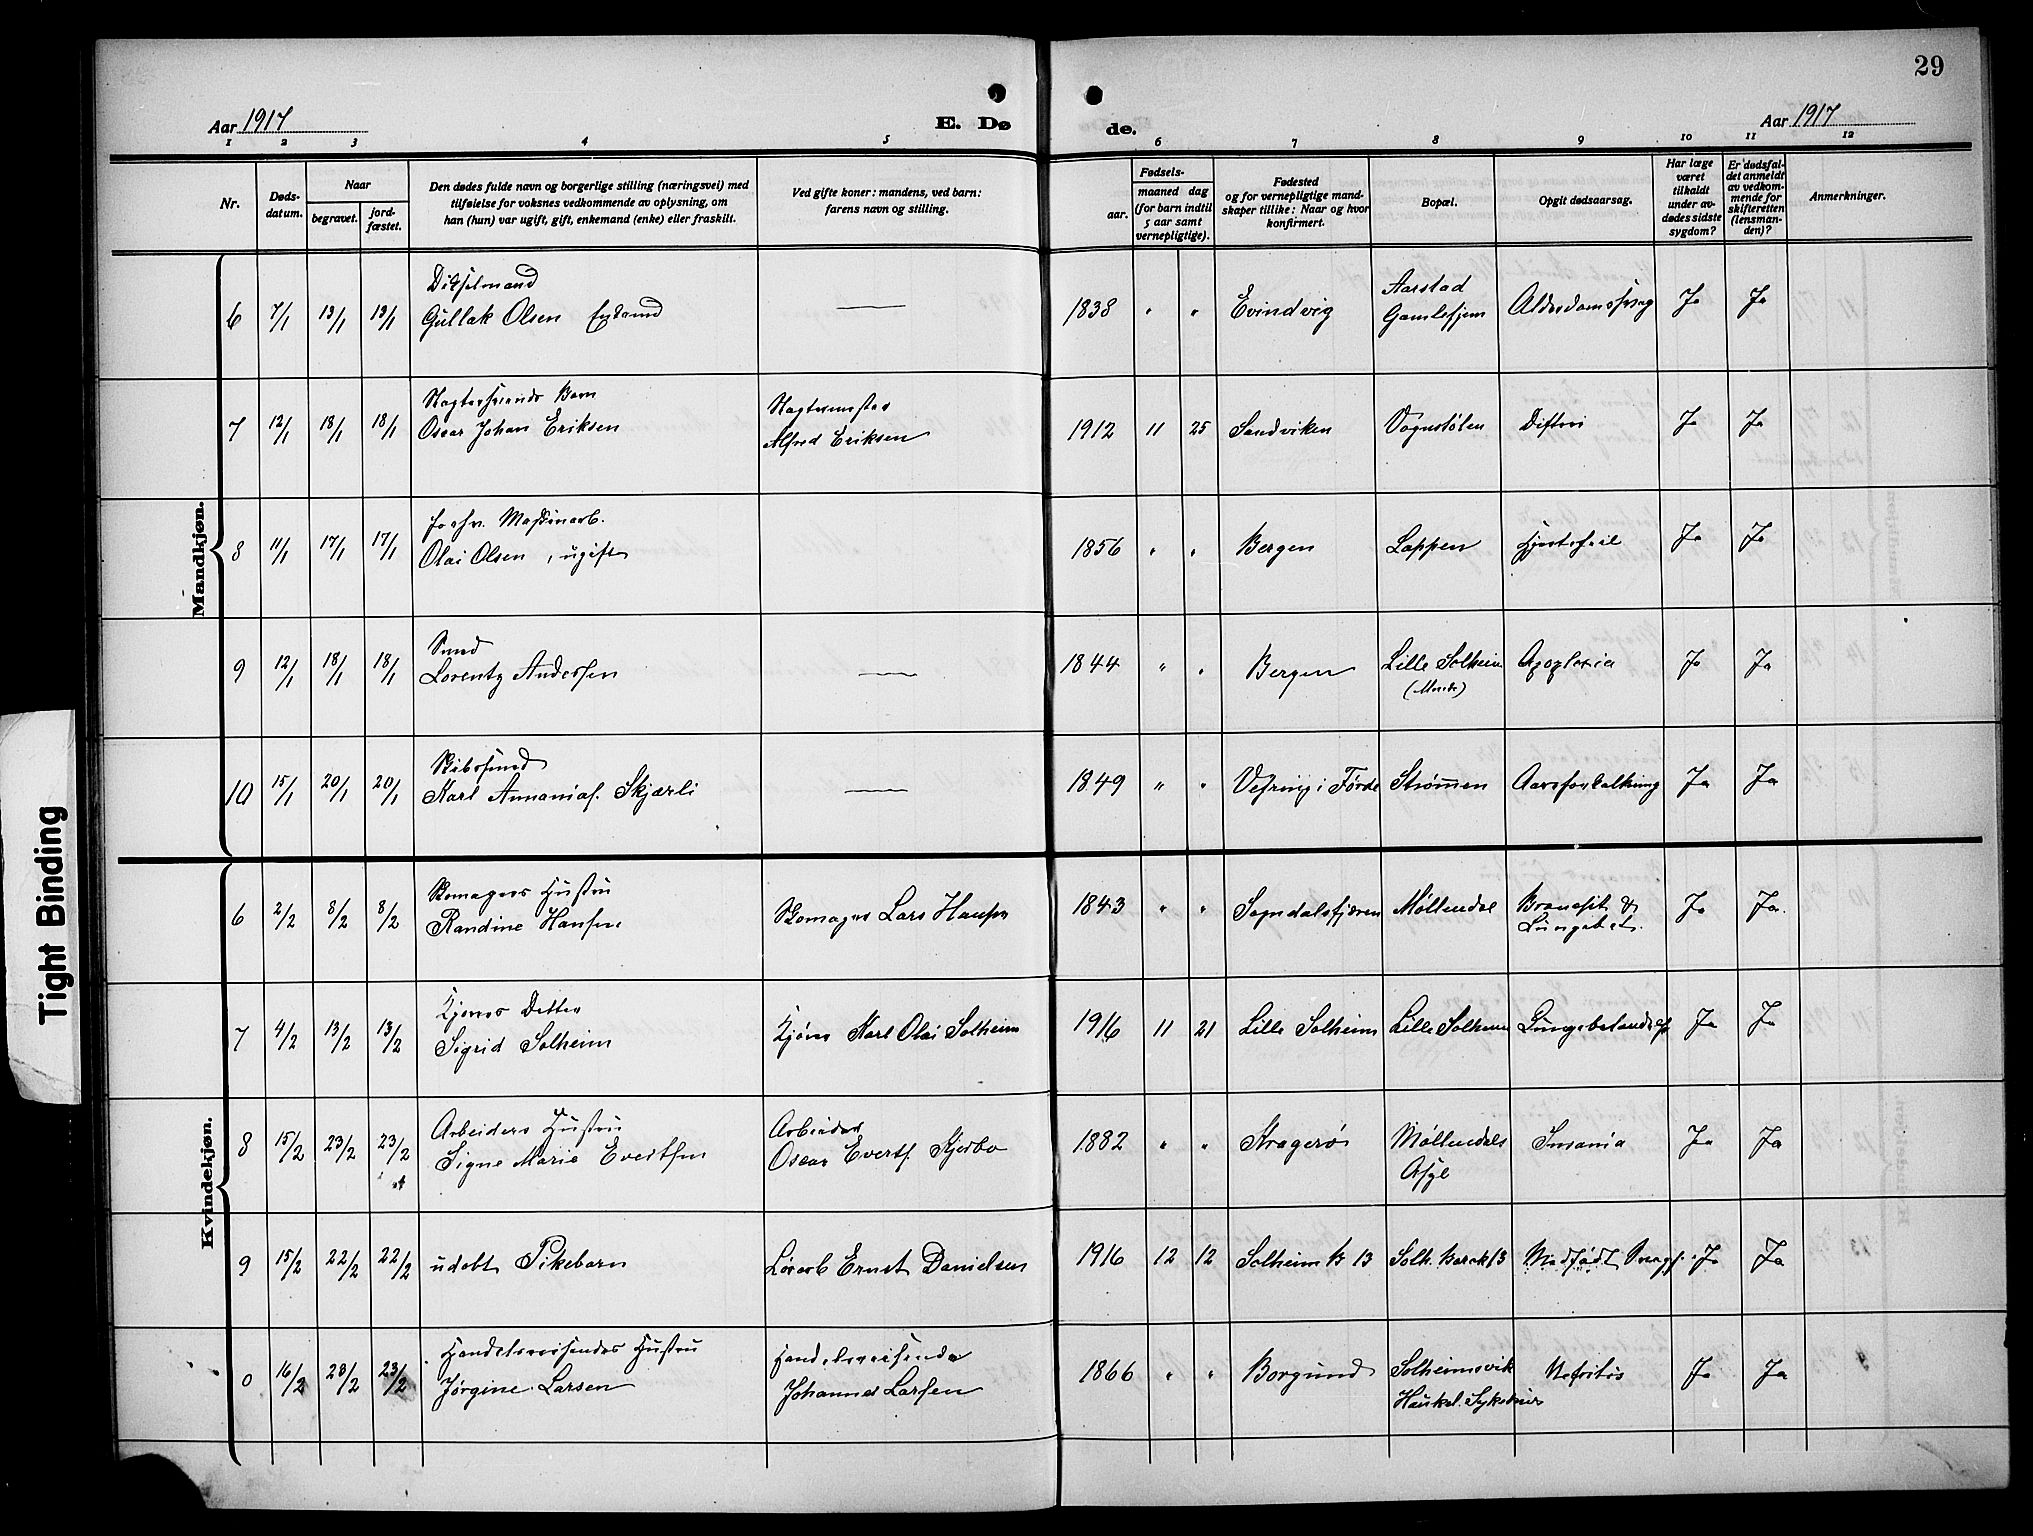 29
Aar 1917
E. Dø
de.
Aar 1917
1 2 3 4 5 6 7 8 9 10 11 12
Nr.
Døds-
datum.
Naar
begravet.
jord-
fæstet.
Den dødes fulde navn og borgerlige stilling (næringsvei) med
tilføielse for voksnes vedkommende av oplysning, om
han (hun) var ugift, gift, enkemand (enke) eller fraskilt.
Ved gifte koner: mandens, ved barn:
farens navn og stilling.
Fødsels-
aar.
maaned dag
(for barn indtil
5 aar samt
vernepligtige).
Fødested
og for vernepligtige mand-
skaper tillike: Naar og hvor
konfirmert.
Bopæl.
Opgit dødsaarsag.
Har læge
været
tilkaldt
under av-
dødes sidste
sygdom?
Er dødsfal-
det anmeldt
av vedkom-
mende for
skifteretten
(lensman-
den)?
Anmerkninger.
Mandkjøn.
Aarstad
6 7/1 13/1 13/1 Gullak Olsen — 1838 " " Evindvig Gamlehjem Ja Ja
Barn Slagtermester
7 12/1 18/1 18/1 Oscar Johan Eriksen Alfred Eriksen 1912 11 25 Sandviken Vognstølen Difteri Ja Ja
8 11/1 17/1 17/1 Olai Olsen, ugift 1856 " " Bergen Lappen Hjertefeil Ja Ja
Smed
9 12/1 18/1 18/1 Lorentz Anderssen — 1844 " " Bergen Lille Solheim Apoplexia Ja Ja
10 15/1 20/1 20/1 Karl Annanias. Skjærli — 1849 " " Vefring i Førde Strømmen Aareforkalkning Ja Ja
Kvindekjøn.
Skomagers Hustru
6 2/2 8/2 8/2 Randine Hansen Skomager Lars Hansen 1843 " " Sogndalsfjæren Møllendal Bronchit & Ja Ja.
Lungebet.
Kjøres Datter
7 4/2 13/2 13/2 Sigrid Solheim Kjører Karl Olai Solheim 1916 11 21 Lille Solheim Lille Solheim Ja Ja
Arbeiders Hustru Arbeider
8 15/2 23/2 23/2 Signe Marie Evertsen Oscar Everts. Kjerbo 1882 " " Kragerø Møllendals Insania Ja Ja
Asyl
9 15/2 22/2 22/2 udøbt Pikebarn Løsarb Ernst Danielsen 1916 12 12 Solheim B 13 Solh. Barak 13 Medfødt Svagh. Ja Ja
Handelsreisendes Hustru Handelsreisende
0 16/2 23/2 23/2 Jørgine Larsen Johannes Larsen 1866 " " Borgund Solheimsvik Nefritis Ja Ja
Haukel. Sykehus
Tight Binding